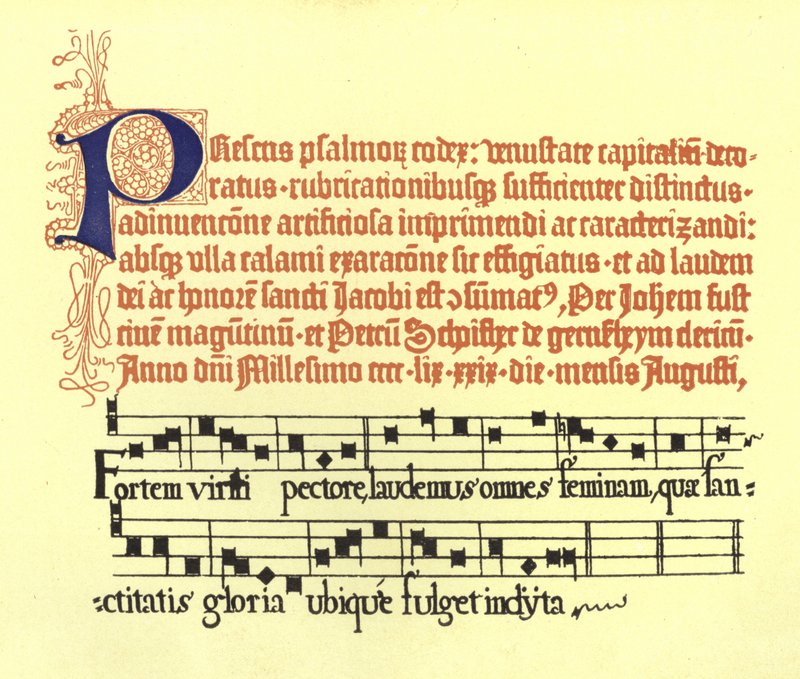 Presens psalmoꝝ codex: venustate capitaliū deco-
ratus·rubricationibusqꝫ sufficienter distinctus·
adinuencōne artificiosa imprimendi ac caracterizandi:
absqꝫ vlla calami exaracōne sic effigiatus·et ad laudem
dei ac honorē sancti Jacobi est ↄsūmatꝰ, Per Johēm fust
ciuē magūtinū·et Petrū Schoifher de gernsheym clericū·
Anno dn̄i Millesimo cccc·lix·xxix·die·mensis Augusti,
Fortem virili pectore, laudemus omnes feminam, quæ san=
=ctitatis gloria ubiqué fulget indÿta